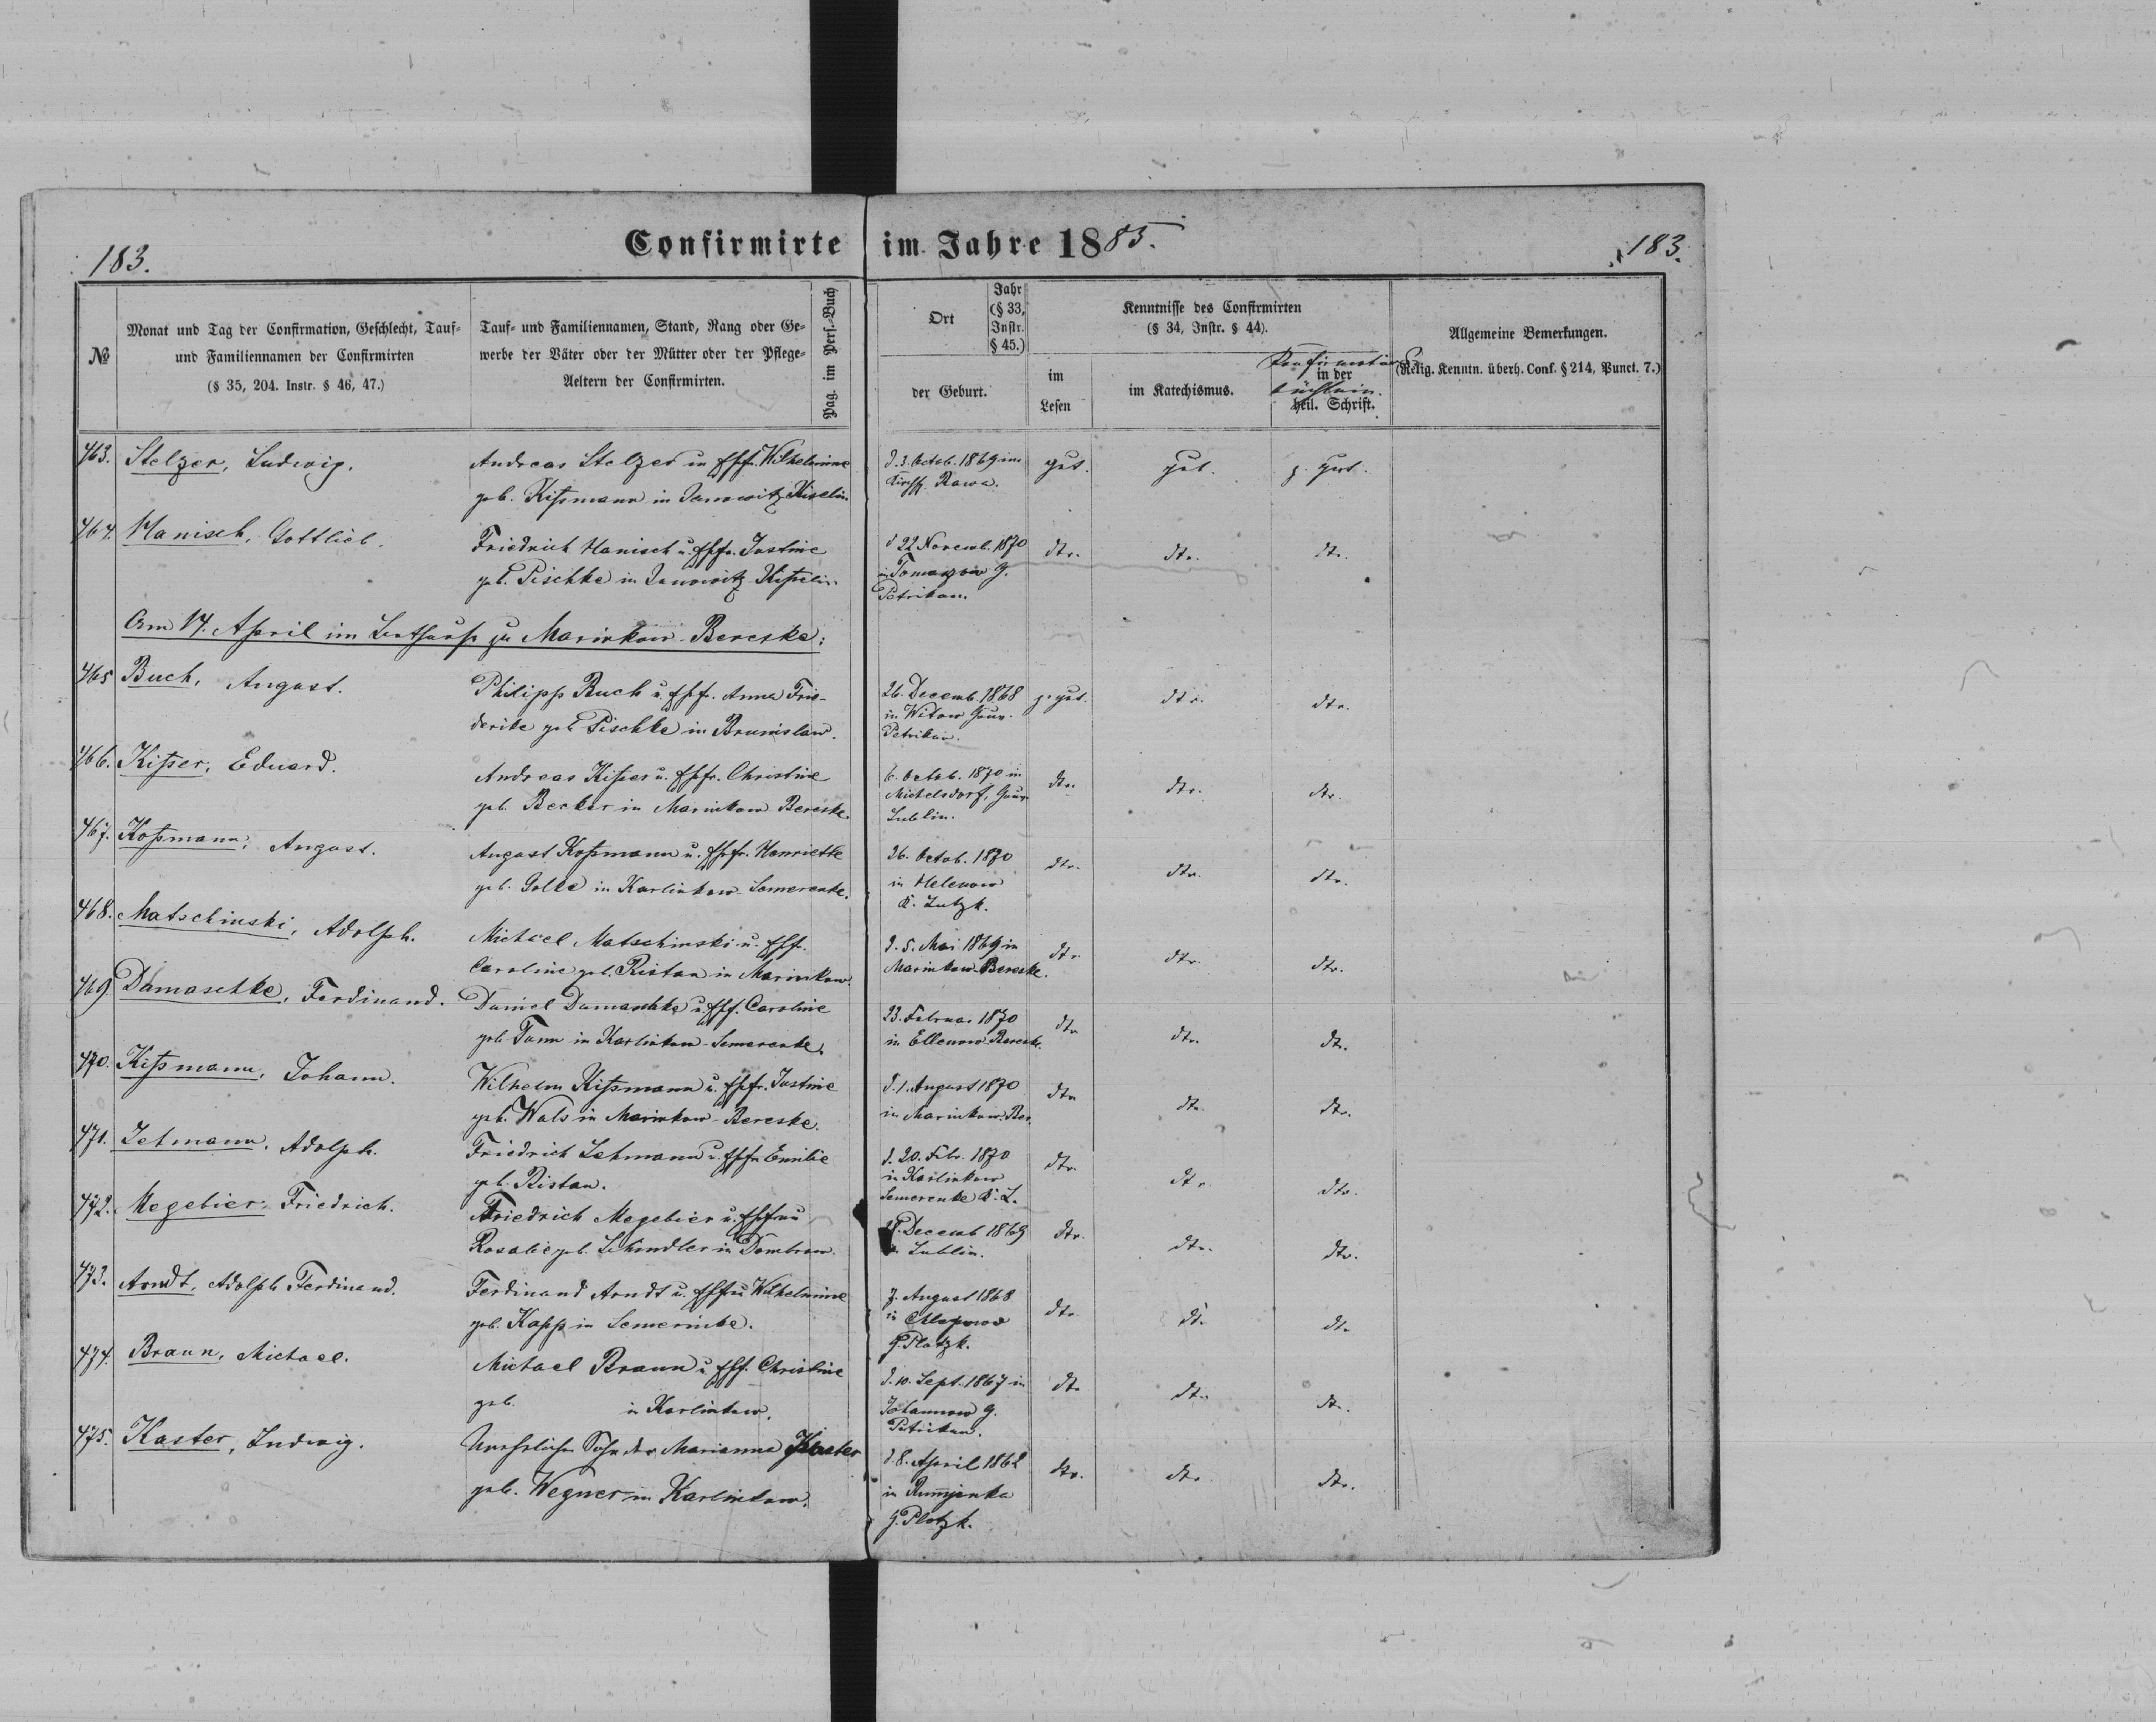 183.
Confirmirte im Jahre 1885.
183.
№
Monat und Tag der Confirmation, Geschlecht, Tauf-
und Familiennamen der Confirmirten
(§ 35, 204. Instr. § 46, 47.)
Tauf- und Familiennamen, Stand, Rang oder Ge-
werbe der Väter oder der Mütter oder der Pflege-
Aeltern der Confirmirten.
Pag. im Pers.-Buch
Ort
Jahr
(§ 33,
Instr.
§ 45.)
der Geburt.
Kenntnisse des Confirmirten
(§ 34, Instr. § 44).
im
Lesen
im Katechismus.
Confirmation
in der
büchlein.
heil. Schrift.
Allgemeine Bemerkungen.
(Relig. Kenntn. überh. Conf. § 214, Punct. 7.)
463. Stelzer, Ludwig.
Andreas Stelzer u Ehfr. Wilhelmine
geb. Kißmann in Janowitz Kiselin
d. 3. Octob. 1869 im
Kirchsp. Rawa.
gut. gut. z. gut.
464. Hanisch, Gottlieb.
Friedrich Hanisch u. Ehfr. Justine
geb. Pischke in Janowitz Kiselin.
d 22 Novemb. 1870
in Tomaszow G.
Petrikau.
dto. dto. dto.
Am 17. April im Bethause zu Marinkow-Bereske:
465 Buch, August.
Philipp Buch u. Ehf. Anna Frie-
derike geb Pischke in Brunislaw.
26. Decemb. 1868
in Witow Gouv.
Petrikau.
z. gut. dto. dto.
466. Kißer, Eduard.
Andreas Kißer u. Ehfr. Christine
geb. Becker in Marinkow Bereske.
6. Octob. 1870 in
Michelsdorf, Gouv
Lublin.
dto. dto. dto.
467. Koßmann, August.
August Koßmann u. Ehfr. Henriette
geb. Golke in Karlinkow Semerenke.
26. Octob. 1870
in Helenow
K. Lutzk.
dto. dto. dto.
468. Matschinski, Adolph.
Michael Matschinski u. Ehf.
Caroline geb. Ristau in Marinkow.
d. 5. Mai 1869 in
Marinkow-Bereske.
dto. dto. dto.
469. Damaschke, Ferdinand.
Daniel Damaschke u. Ehf. Caroline
geb. Tamm in Karlinkow-Semerenke.
23. Februar 1870
in Ellenow-Bereske.
dto. dto. dto.
470. Kißmann, Johann.
Wilhelm Kißmann u. Ehfr. Justine
geb. Wals in Marinkow-Bereske.
d. 1. August 1870
in Marinkow-Ber.
dto. dto. dto.
471. Lehmann, Adolph.
Friedrich Lehmann u. Ehfr. Emilie
geb. Ristau.
d. 20. Febr. 1870
in Karlinkow
Semerenke K. L.
dto. dto. dto.
472. Megebier, Friedrich.
Friedrich Megebier u. Ehfrau
Rosalie geb. Schindler in Dombrow.
Decemb 1869
Lublin.
dto. dto. dto.
473. Arndt, Adolph Ferdinand.
Ferdinand Arndt u. Ehfr. Wilhelmine
geb. Kapp in Semerinke.
7. August 1868
in
G. Plotzk.
dto. dto. dto.
474. Braun, Michael.
Michael Braun u. Ehf. Christine
geb. in Karlinkow.
d. 10. Sept. 1867 in
Johannow G.
Petrikau.
dto. dto. dto.
475. Kaster, Ludwig.
Unehelicher Sohn der Marianna Kaster
geb. Wegner in Karlinkow.
d. 8. April 1862
in Rumjanka
G. Plotzk.
dto. dto. dto.